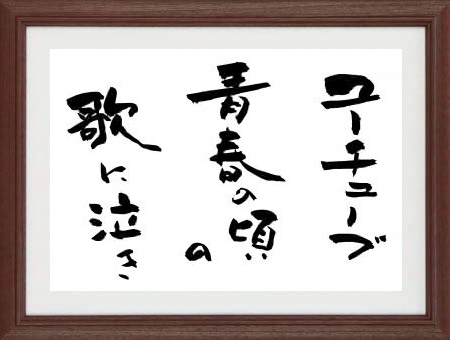 ユーチューブ
青春の頃の
歌に泣き